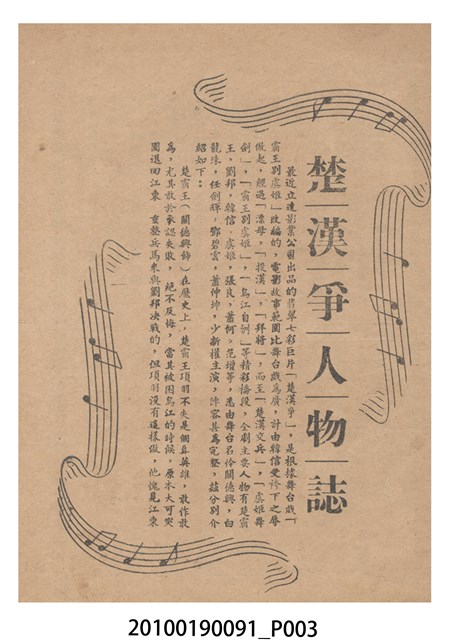 楚漢爭人物誌
最近立達影業公司出品的翡翠七彩巨片「楚漢爭」，是根據舞台戲「
霸王別虞姬」改編的，電影故事範圍比舞台戲為廣，計由韓信受胯下之辱
做起，經過「漂母」，「投漢」，「拜將」，而至「楚漢交兵」，「虞姬舞
劍」，「霸王別虞姬」，「烏江自刎」等精彩橋段，全劇主要人物有楚霸
王，劉邦，韓信，虞姬，張良，蕭何，范增等，悉由舞台名伶關德興，白
龍珠，任劍輝，鄧碧雲，蕭仲坤，少新權主演，陣容甚為完整，茲分別介
紹如下：
楚霸王（關德興飾）在歷史上，楚霸王項羽不失是個真英雄，敢作敢
為，尤其敢於承認失敗，絕不反悔，當其被困烏江的時候，原本大可突
圍退回江東，重整兵馬來與劉邦決戰的，但項羽沒有這樣做，他愧見江東
20100190091_P003